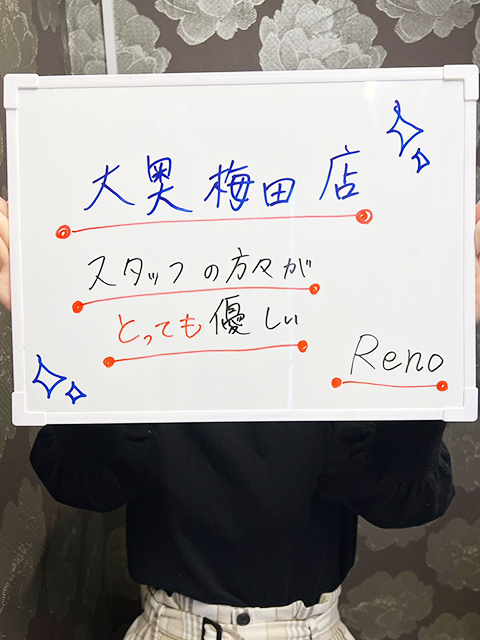 大奥梅田店
スタッフの方々が
とっても優しい
Reno